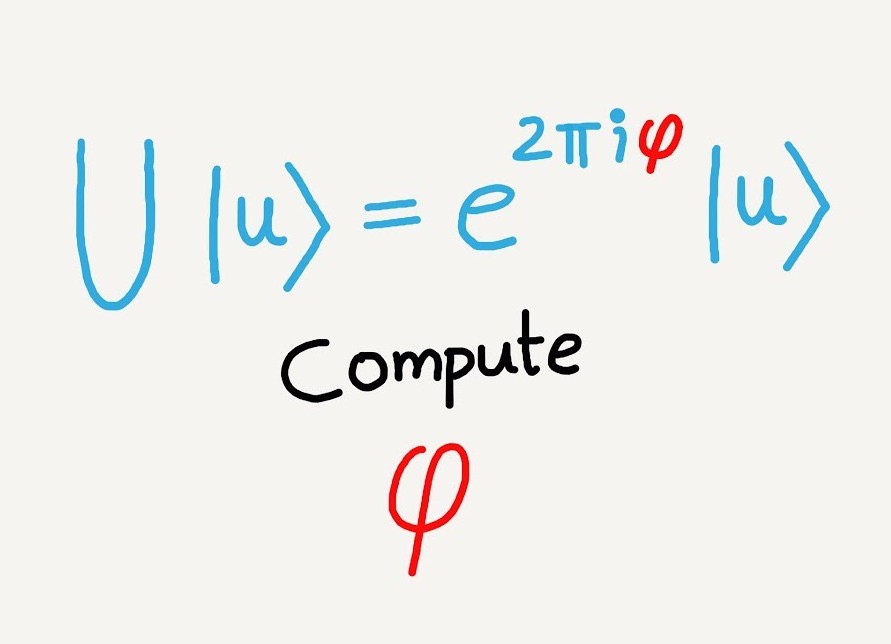 U|u⟩ = e^{2πiφ} |u⟩
Compute
φ